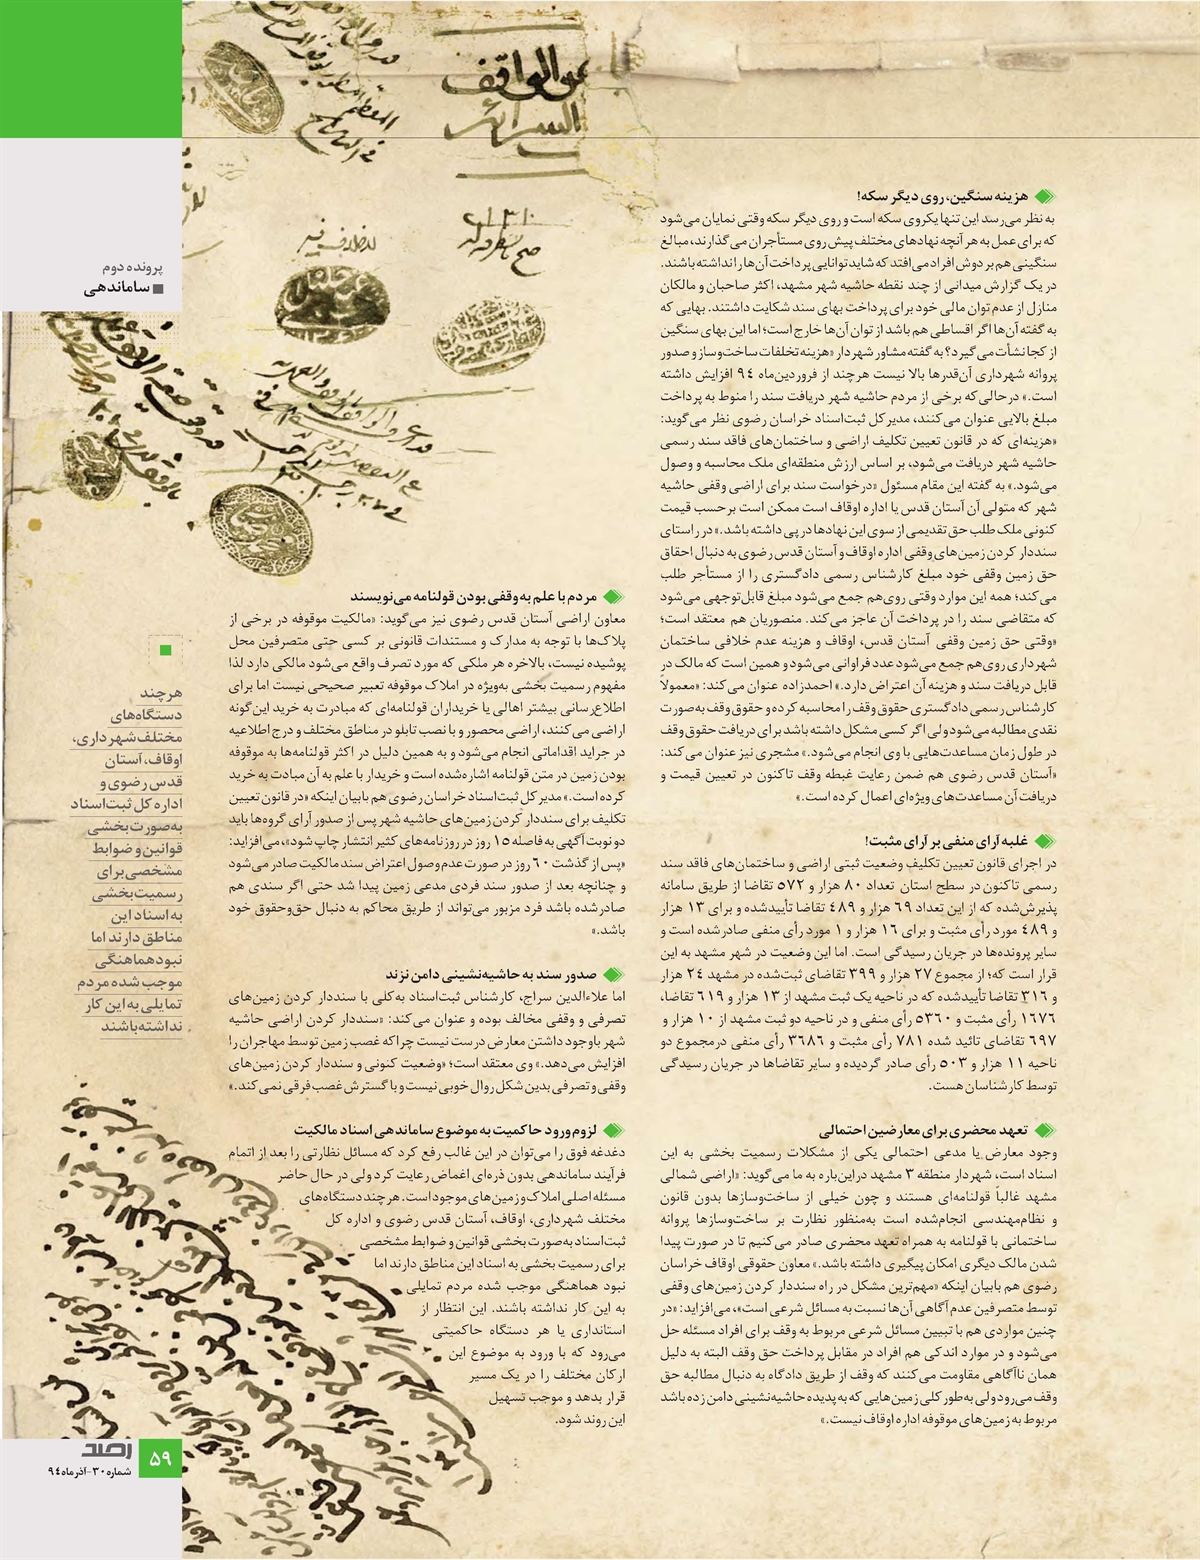 پرونده دوم
ساماندهی
هزینه سنگین، روی دیگر سکه!
به نظر می‌رسد این تنها یکروی سکه است و روی دیگر سکه وقتی نمایان می‌شود
که برای عمل به هر آنچه نهادهای مختلف پیش روی مستأجران می‌گذارند، مبالغ
سنگینی هم بر دوش افراد می‌افتد که شاید توانایی پرداخت آن‌ها را نداشته باشند.
در یک گزارش میدانی از چند نقطه حاشیه شهر مشهد، اکثر صاحبان و مالکان
منازل از عدم توان مالی خود برای پرداخت بهای سند شکایت داشتند. بهایی که
به گفته آن‌ها اگر اقساطی هم باشد از توان آن‌ها خارج است؛ اما این بهای سنگین
از کجا نشأت می‌گیرد؟ به گفته مشاور شهردار «هزینه تخلفات ساخت‌وساز و صدور
پروانه شهرداری آن‌قدرها بالا نیست هرچند از فروردین‌ماه ۹۴ افزایش داشته
است.» درحالی‌که برخی از مردم حاشیه شهر دریافت سند را منوط به پرداخت
مبلغ بالایی عنوان می‌کنند، مدیر کل ثبت‌اسناد خراسان رضوی نظر می‌گوید:
«هزینه‌ای که در قانون تعیین تکلیف اراضی و ساختمان‌های فاقد سند رسمی
حاشیه شهر دریافت می‌شود، بر اساس ارزش منطقه‌ای ملک محاسبه و وصول
می‌شود.» به گفته این مقام مسئول «درخواست سند برای اراضی وقفی حاشیه
شهر که متولی آن آستان قدس یا اداره اوقاف است ممکن است برحسب قیمت
کنونی ملک طلب حق تقدیمی از سوی این نهادها در پی داشته باشد.» در راستای
سنددار کردن زمین‌های وقفی اداره اوقاف و آستان قدس رضوی به دنبال احقاق
حق زمین وقفی خود مبلغ کارشناس رسمی دادگستری را از مستأجر طلب
می‌کند؛ همه این موارد وقتی روی‌هم جمع می‌شود مبلغ قابل‌توجهی می‌شود
که متقاضی سند را در پرداخت آن عاجز می‌کند. منصوریان هم معتقد است؛
«وقتی حق زمین وقفی آستان قدس، اوقاف و هزینه عدم خلافی ساختمان
شهرداری روی‌هم جمع می‌شود عدد فراوانی می‌شود و همین است که مالک در
قابل دریافت سند و هزینه آن اعتراض دارد.» احمدزاده عنوان می‌کند: «معمولاً
کارشناس رسمی دادگستری حقوق وقف را محاسبه کرده و حقوق وقف به‌صورت
نقدی مطالبه می‌شود ولی اگر کسی مشکل داشته باشد برای دریافت حقوق وقف
در طول زمان مساعدت‌هایی با وی انجام می‌شود.» مشجری نیز عنوان می‌کند:
«آستان قدس رضوی هم ضمن رعایت غبطه وقف تاکنون در تعیین قیمت و
دریافت آن مساعدت‌های ویژه‌ای اعمال کرده است.»
غلبه آرای منفی بر آرای مثبت!
در اجرای قانون تعیین تکلیف وضعیت ثبتی اراضی و ساختمان‌های فاقد سند
رسمی تاکنون در سطح استان تعداد ۸۰ هزار و ۵۷۲ تقاضا از طریق سامانه
پذیرش‌شده که از این تعداد ۶۹ هزار و ۴۸۹ تقاضا تأییدشده و برای ۱۳ هزار
و ۴۸۹ مورد رأی مثبت و برای ۱۶ هزار و ۱ مورد رأی منفی صادرشده است و
سایر پرونده‌ها در جریان رسیدگی است. اما این وضعیت در شهر مشهد به این
قرار است که؛ از مجموع ۲۷ هزار و ۳۹۹ تقاضای ثبت‌شده در مشهد ۲۴ هزار
و ۳۱۶ تقاضا تأییدشده که در ناحیه یک ثبت مشهد از ۱۳ هزار و ۶۱۹ تقاضا،
۱۶۷۶ رأی مثبت و ۵۳۶۰ رأی منفی و در ناحیه دو ثبت مشهد از ۱۰ هزار و
۶۹۷ تقاضای تائید شده ۷۸۱ رأی مثبت و ۳۶۸۶ رأی منفی درمجموع دو
ناحیه ۱۱ هزار و ۵۰۳ رأی صادر گردیده و سایر تقاضاها در جریان رسیدگی
توسط کارشناسان هست.
تعهد محضری برای معارضین احتمالی
وجود معارض یا مدعی احتمالی یکی از مشکلات رسمیت بخشی به این
اسناد است، شهردار منطقه ۳ مشهد دراین‌باره به ما می‌گوید: «اراضی شمالی
مشهد غالباً قولنامه‌ای هستند و چون خیلی از ساخت‌وسازها بدون قانون
و نظام‌مهندسی انجام‌شده است به‌منظور نظارت بر ساخت‌وسازها پروانه
ساختمانی با قولنامه به همراه تعهد محضری صادر می‌کنیم تا در صورت پیدا
شدن مالک دیگری امکان پیگیری داشته باشد.» معاون حقوقی اوقاف خراسان
رضوی هم بابیان اینکه «مهم‌ترین مشکل در راه سنددار کردن زمین‌های وقفی
توسط متصرفین عدم آگاهی آن‌ها نسبت به مسائل شرعی است»، می‌افزاید: «در
چنین مواردی هم با تبیین مسائل شرعی مربوط به وقف برای افراد مسئله حل
می‌شود و در موارد اندکی هم افراد در مقابل پرداخت حق وقف البته به دلیل
همان ناآگاهی مقاومت می‌کنند که وقف از طریق دادگاه به دنبال مطالبه حق
وقف می‌رود ولی به‌طور کلی زمین‌هایی که به پدیده حاشیه‌نشینی دامن زده باشد
مربوط به زمین‌های موقوفه اداره اوقاف نیست.»
مردم با علم به وقفی بودن قولنامه می‌نویسند
معاون اراضی آستان قدس رضوی نیز می‌گوید: «مالکیت موقوفه در برخی از
پلاک‌ها با توجه به مدارک و مستندات قانونی بر کسی حتی متصرفین محل
پوشیده نیست، بالاخره هر ملکی که مورد تصرف واقع می‌شود مالکی دارد لذا
مفهوم رسمیت بخشی به‌ویژه در املاک موقوفه تعبیر صحیحی نیست اما برای
اطلاع‌رسانی بیشتر اهالی یا خریداران قولنامه‌ای که مبادرت به خرید این‌گونه
اراضی می‌کنند، اراضی محصور و با نصب تابلو در مناطق مختلف و درج اطلاعیه
در جراید اقداماتی انجام می‌شود و به همین دلیل در اکثر قولنامه‌ها به موقوفه
بودن زمین در متن قولنامه اشاره‌شده است و خریدار با علم به آن مبادت به خرید
کرده است.» مدیر کل ثبت‌اسناد خراسان رضوی هم بابیان اینکه «در قانون تعیین
تکلیف برای سنددار کردن زمین‌های حاشیه شهر پس از صدور آرای گروه‌ها باید
دو نوبت آگهی به فاصله ۱۵ روز در روزنامه‌های کثیر انتشار چاپ شود»، می‌افزاید:
«پس از گذشت ۶۰ روز در صورت عدم‌وصول اعتراض سند مالکیت صادر می‌شود
و چنانچه بعد از صدور سند فردی مدعی زمین پیدا شد حتی اگر سندی هم
صادرشده باشد فرد مزبور می‌تواند از طریق محاکم به دنبال حق‌وحقوق خود
باشد.»
صدور سند به حاشیه‌نشینی دامن نزند
اما علاءالدین سراج، کارشناس ثبت‌اسناد به‌کلی با سنددار کردن زمین‌های
تصرفی و وقفی مخالف بوده و عنوان می‌کند: «سنددار کردن اراضی حاشیه
شهر باوجود داشتن معارض درست نیست چراکه غصب زمین توسط مهاجران را
افزایش می‌دهد.» وی معتقد است؛ «وضعیت کنونی و سنددار کردن زمین‌های
وقفی و تصرفی بدین شکل روال خوبی نیست و با گسترش غصب فرقی نمی‌کند.»
لزوم ورود حاکمیت به موضوع ساماندهی اسناد مالکیت
دغدغه فوق را می‌توان در این غالب رفع کرد که مسائل نظارتی را بعد از اتمام
فرآیند ساماندهی بدون ذره‌ای اغماض رعایت کرد ولی در حال حاضر
مسئله اصلی املاک و زمین‌های موجود است. هر چند دستگاه‌های
مختلف شهرداری، اوقاف، آستان قدس رضوی و اداره کل
ثبت‌اسناد به‌صورت بخشی قوانین و ضوابط مشخصی
برای رسمیت بخشی به اسناد این مناطق دارند اما
نبود هماهنگی موجب شده مردم تمایلی
به این کار نداشته باشند. این انتظار از
استانداری یا هر دستگاه حاکمیتی
می‌رود که با ورود به موضوع این
ارکان مختلف را در یک مسیر
قرار بدهد و موجب تسهیل
این روند شود.
هرچند
دستگاه‌های
مختلف شهرداری،
اوقاف، آستان
قدس رضوی و
اداره کل ثبت‌اسناد
به‌صورت بخشی
قوانین و ضوابط
مشخصی برای
رسمیت بخشی
به اسناد این
مناطق دارند اما
نبود هماهنگی
موجب شده مردم
تمایلی به این کار
نداشته باشند
۵۹
رصد
شماره ۳۰-آذر ماه ۹۴